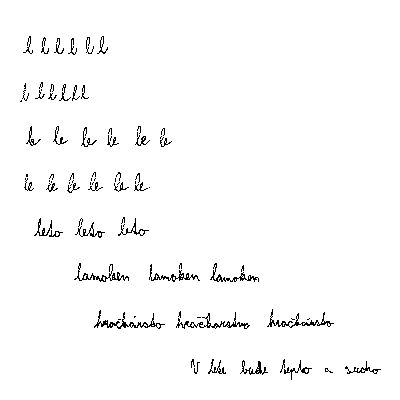 l l l l l l
l l l l l l
le le le le le le
le le le le le le
leto leto leto
lamoken lamoken lamoken
hračkársto hračkarstvo hračkársto
V lete bude teplo a sucho